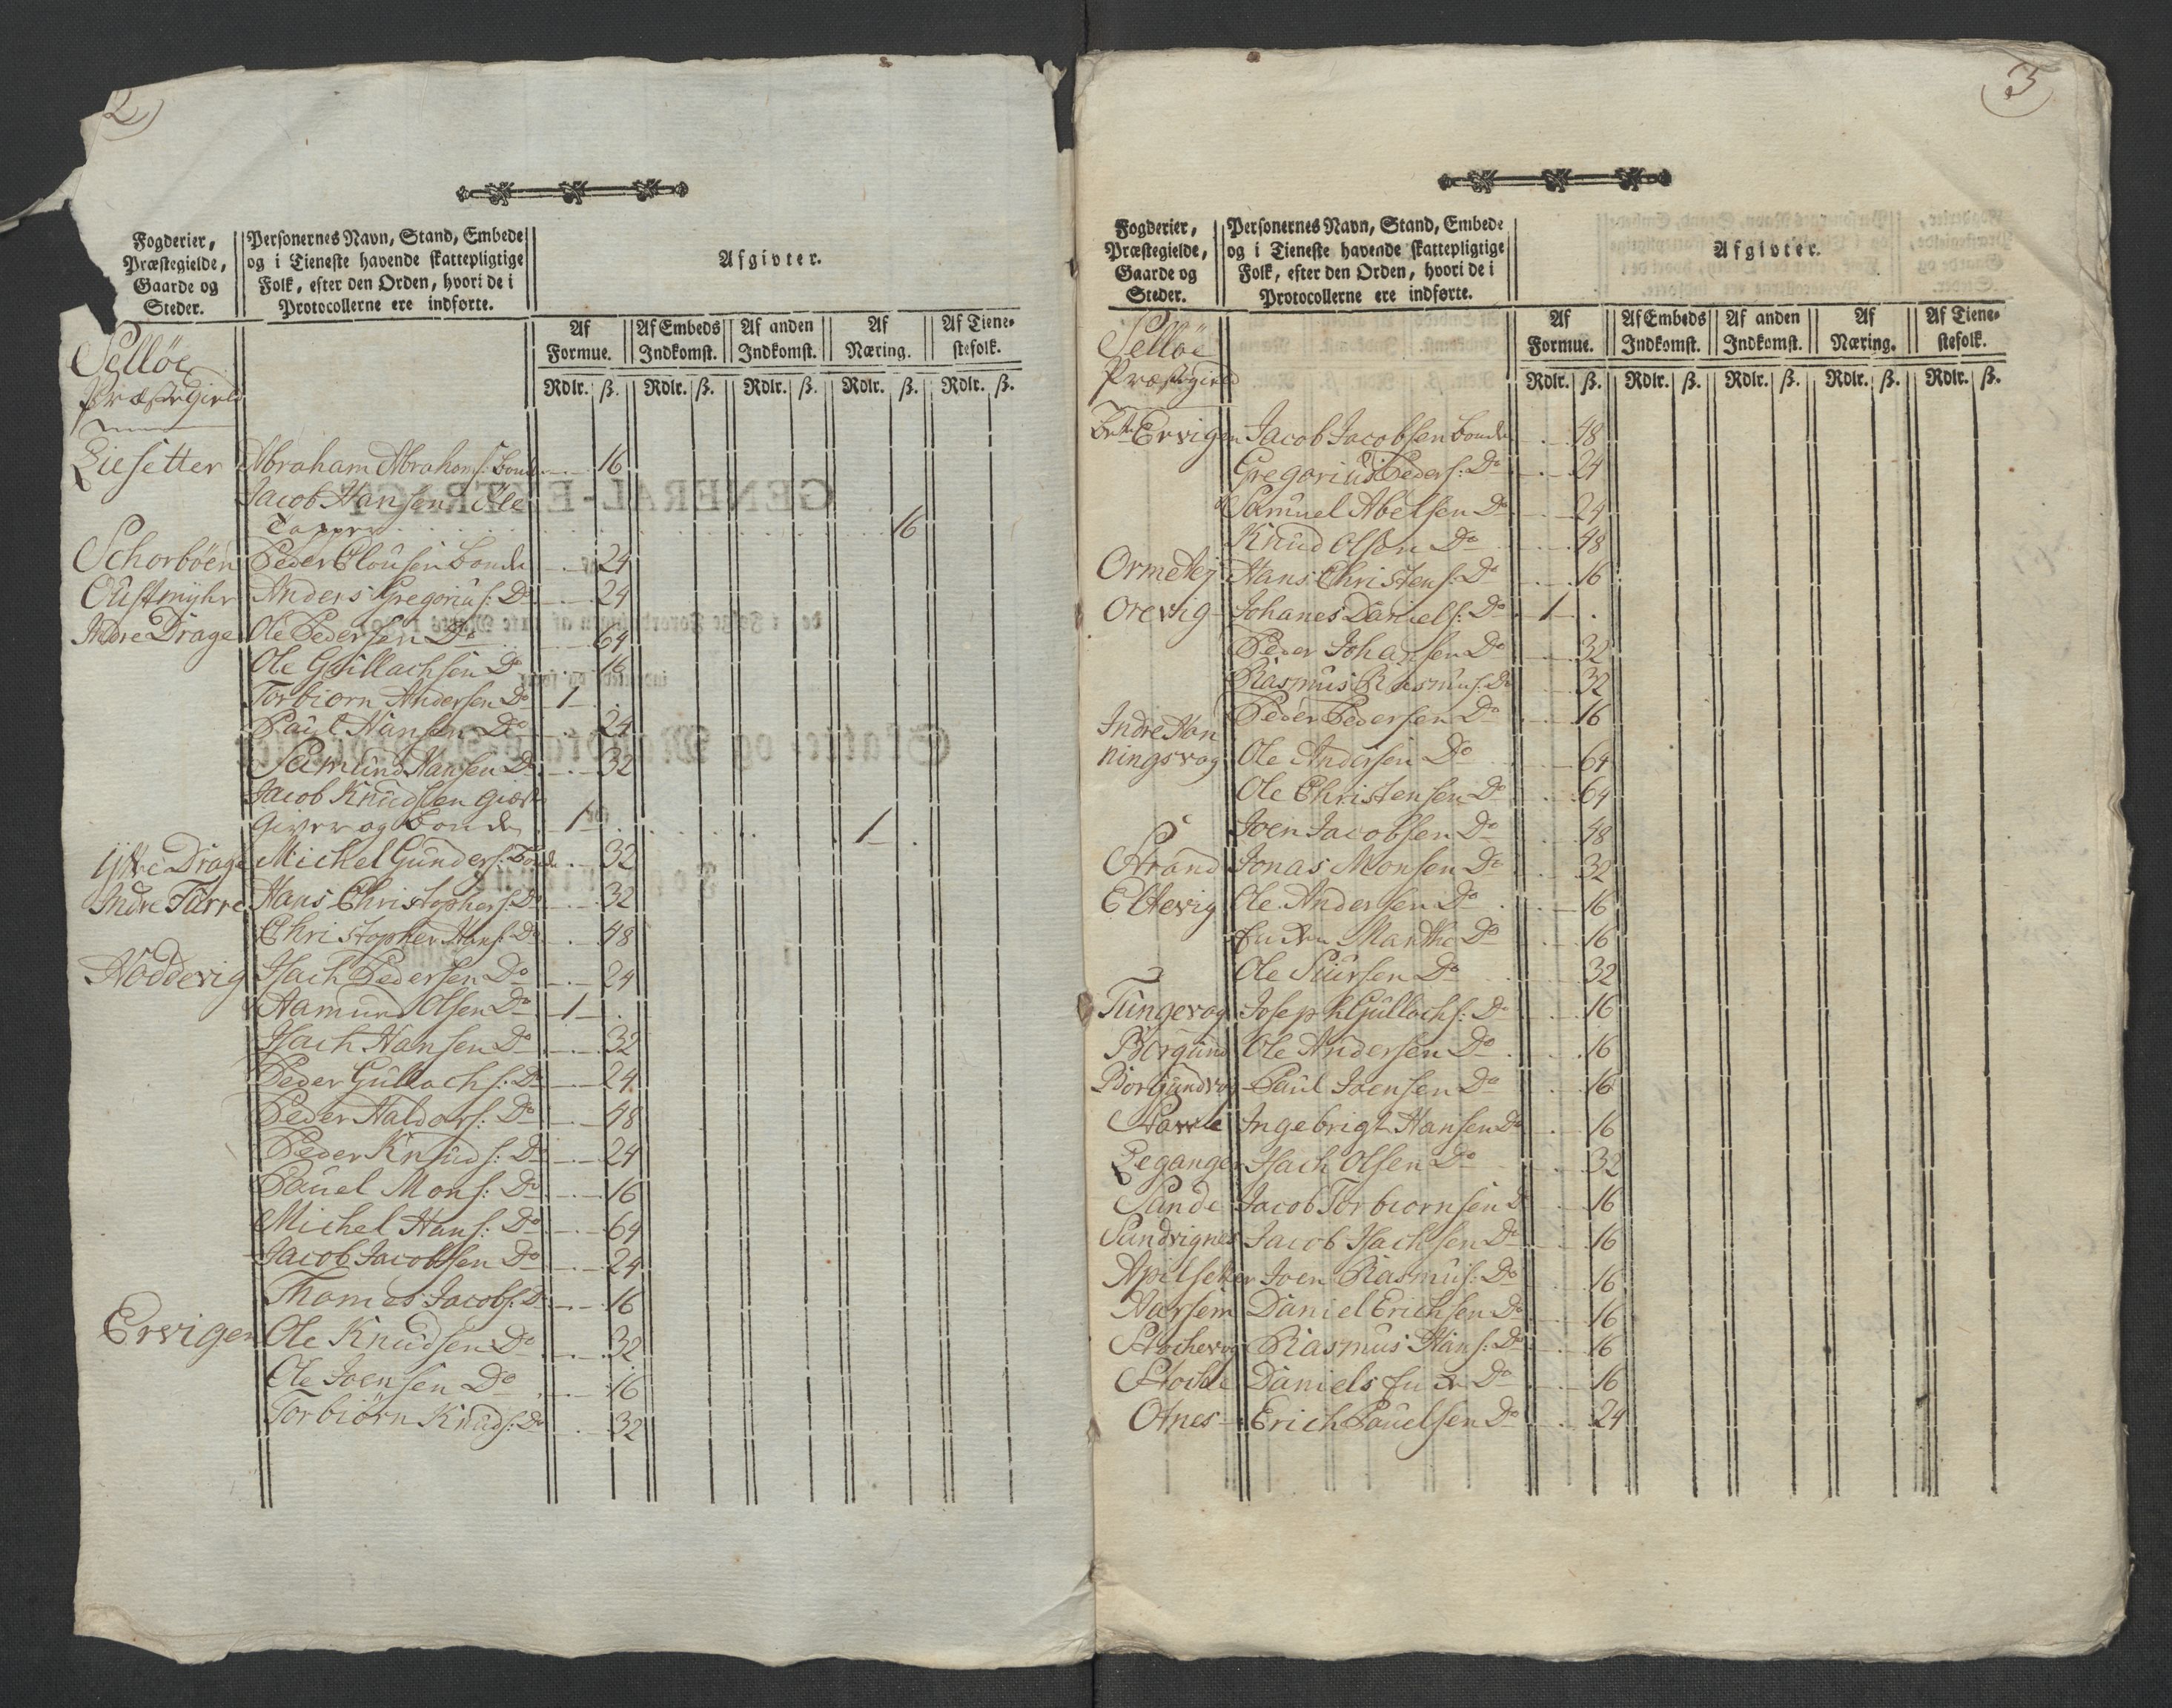 2)
Fogderier, Præstegielde, Gaarde og Steder. Personernes Navn, Stand, Embede og i Tieneste havende skattepligtige Folk, efter den Orden, hvori de i Protocollerne ere indførte. Afgivter.
Af Formue. Af Embeds Indkomst. Af anden Indkomst. Af Næring. Af Tienestefolk.
Rdlr. ß. Rdlr. ß. Rdlr. ß. Rdlr. ß. Rdlr. ß.
Selløe
Præstegield
Liesetter Abraham Abrahams: bonde 16
Jacob Hansen Øle
Tapper 16
Schorbøen Peder Clousen bonde 24
Oustmyhr Anders Gregorius: Do 24
Indre Drage Ole Pedersen Do 64
Ole Gullachsen Do 16
Torbiorn Andersen Do 1
Paul Hansen Do 24
Samund Hansen Do 32
Jacob Knudsen giest
giver og bonde 1 1
Ÿtre Drage Michel Gunders: bonde 32
Indre Farre Hans Christophers: Do 32
Christopher Hans: Do 48
Noddevig Isach Pedersen Do 24
Aamund Olsen Do 1
Isach Hansen Do 32
Peder Gullachs: Do 24
Peder Haldors: Do 48
Peder Knuds: Do 24
Pauel Mons: Do 16
Michel Hans: Do 64
Jacob Jacobsen Do 24
Thomes Jacobs: Do 16
Ervigen Ole Knudsen Do 32
Ole Joensen Do 16
Torbiørn Knuds: Do 32
3
Fogderier, Præstegielde, Gaarde og Steder. Personernes Navn, Stand, Embede og i Tieneste havende skattepligtige Folk, efter den Orden, hvori de i Protocollerne ere indførte. Afgivter.
Af Formue. Af Embeds Indkomst. Af anden Indkomst. Af Næring. Af Tienestefolk.
Rdlr. ß. Rdlr. ß. Rdlr. ß. Rdlr. ß. Rdlr. ß.
Selløe
Præstegield
Ervigen Jacob Jacobsen bonde 48
Gregorius Peders: Do 24
Samuel Abelsen Do 24
Knud Olsen Do 48
Ormetej Hans Christens: Do 16
Orevig Johanes Daniels: Do 1
Peder Johansen Do 32
Rasmus Rasmus: Do 32
Peder Pedersen Do 16
Indre Hon
ningsvog Ole Andersen Do 64
Ole Christensen Do 64
Joen Jacobsen Do 48
Strand Jonas Monsen Do 32
Eltevig Ole Andersen Do 16
Enken Marthe Do 16
Ole Siursen Do 32
Tungevog Joseph Gullachs: Do 16
Borgund Ole Andersen Do 16
Borgundvog Paul Joensen Do 16
Ingebrigt Hansen Do 16
Leganger Isach Olsen Do 32
Sande Jacob Torbiornsen Do 16
Sandvignes Jacob Isachsen Do 16
Apilseter Joen Rasmus: Do 16
Aarsem Daniel Erichsen Do 16
Stochevog Rasmus Hans: Do 16
Daniels Do 16
Otnes Erich Pauelsen Do 24